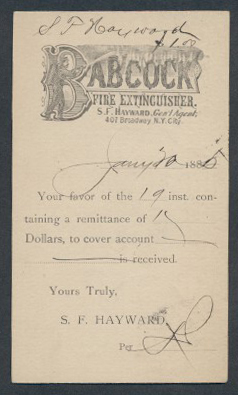 S F Hayward
$1.50
BABCOCK
FIRE EXTINGUISHER.
S. F. HAYWARD, Gen'l Agent,
407 Broadway N.Y. City.
Jany 20 188
Your favor of the 19 inst. con-
taining a remittance of
Dollars, to cover account
is received.
Yours Truly,
S. F. HAYWARD,
Per